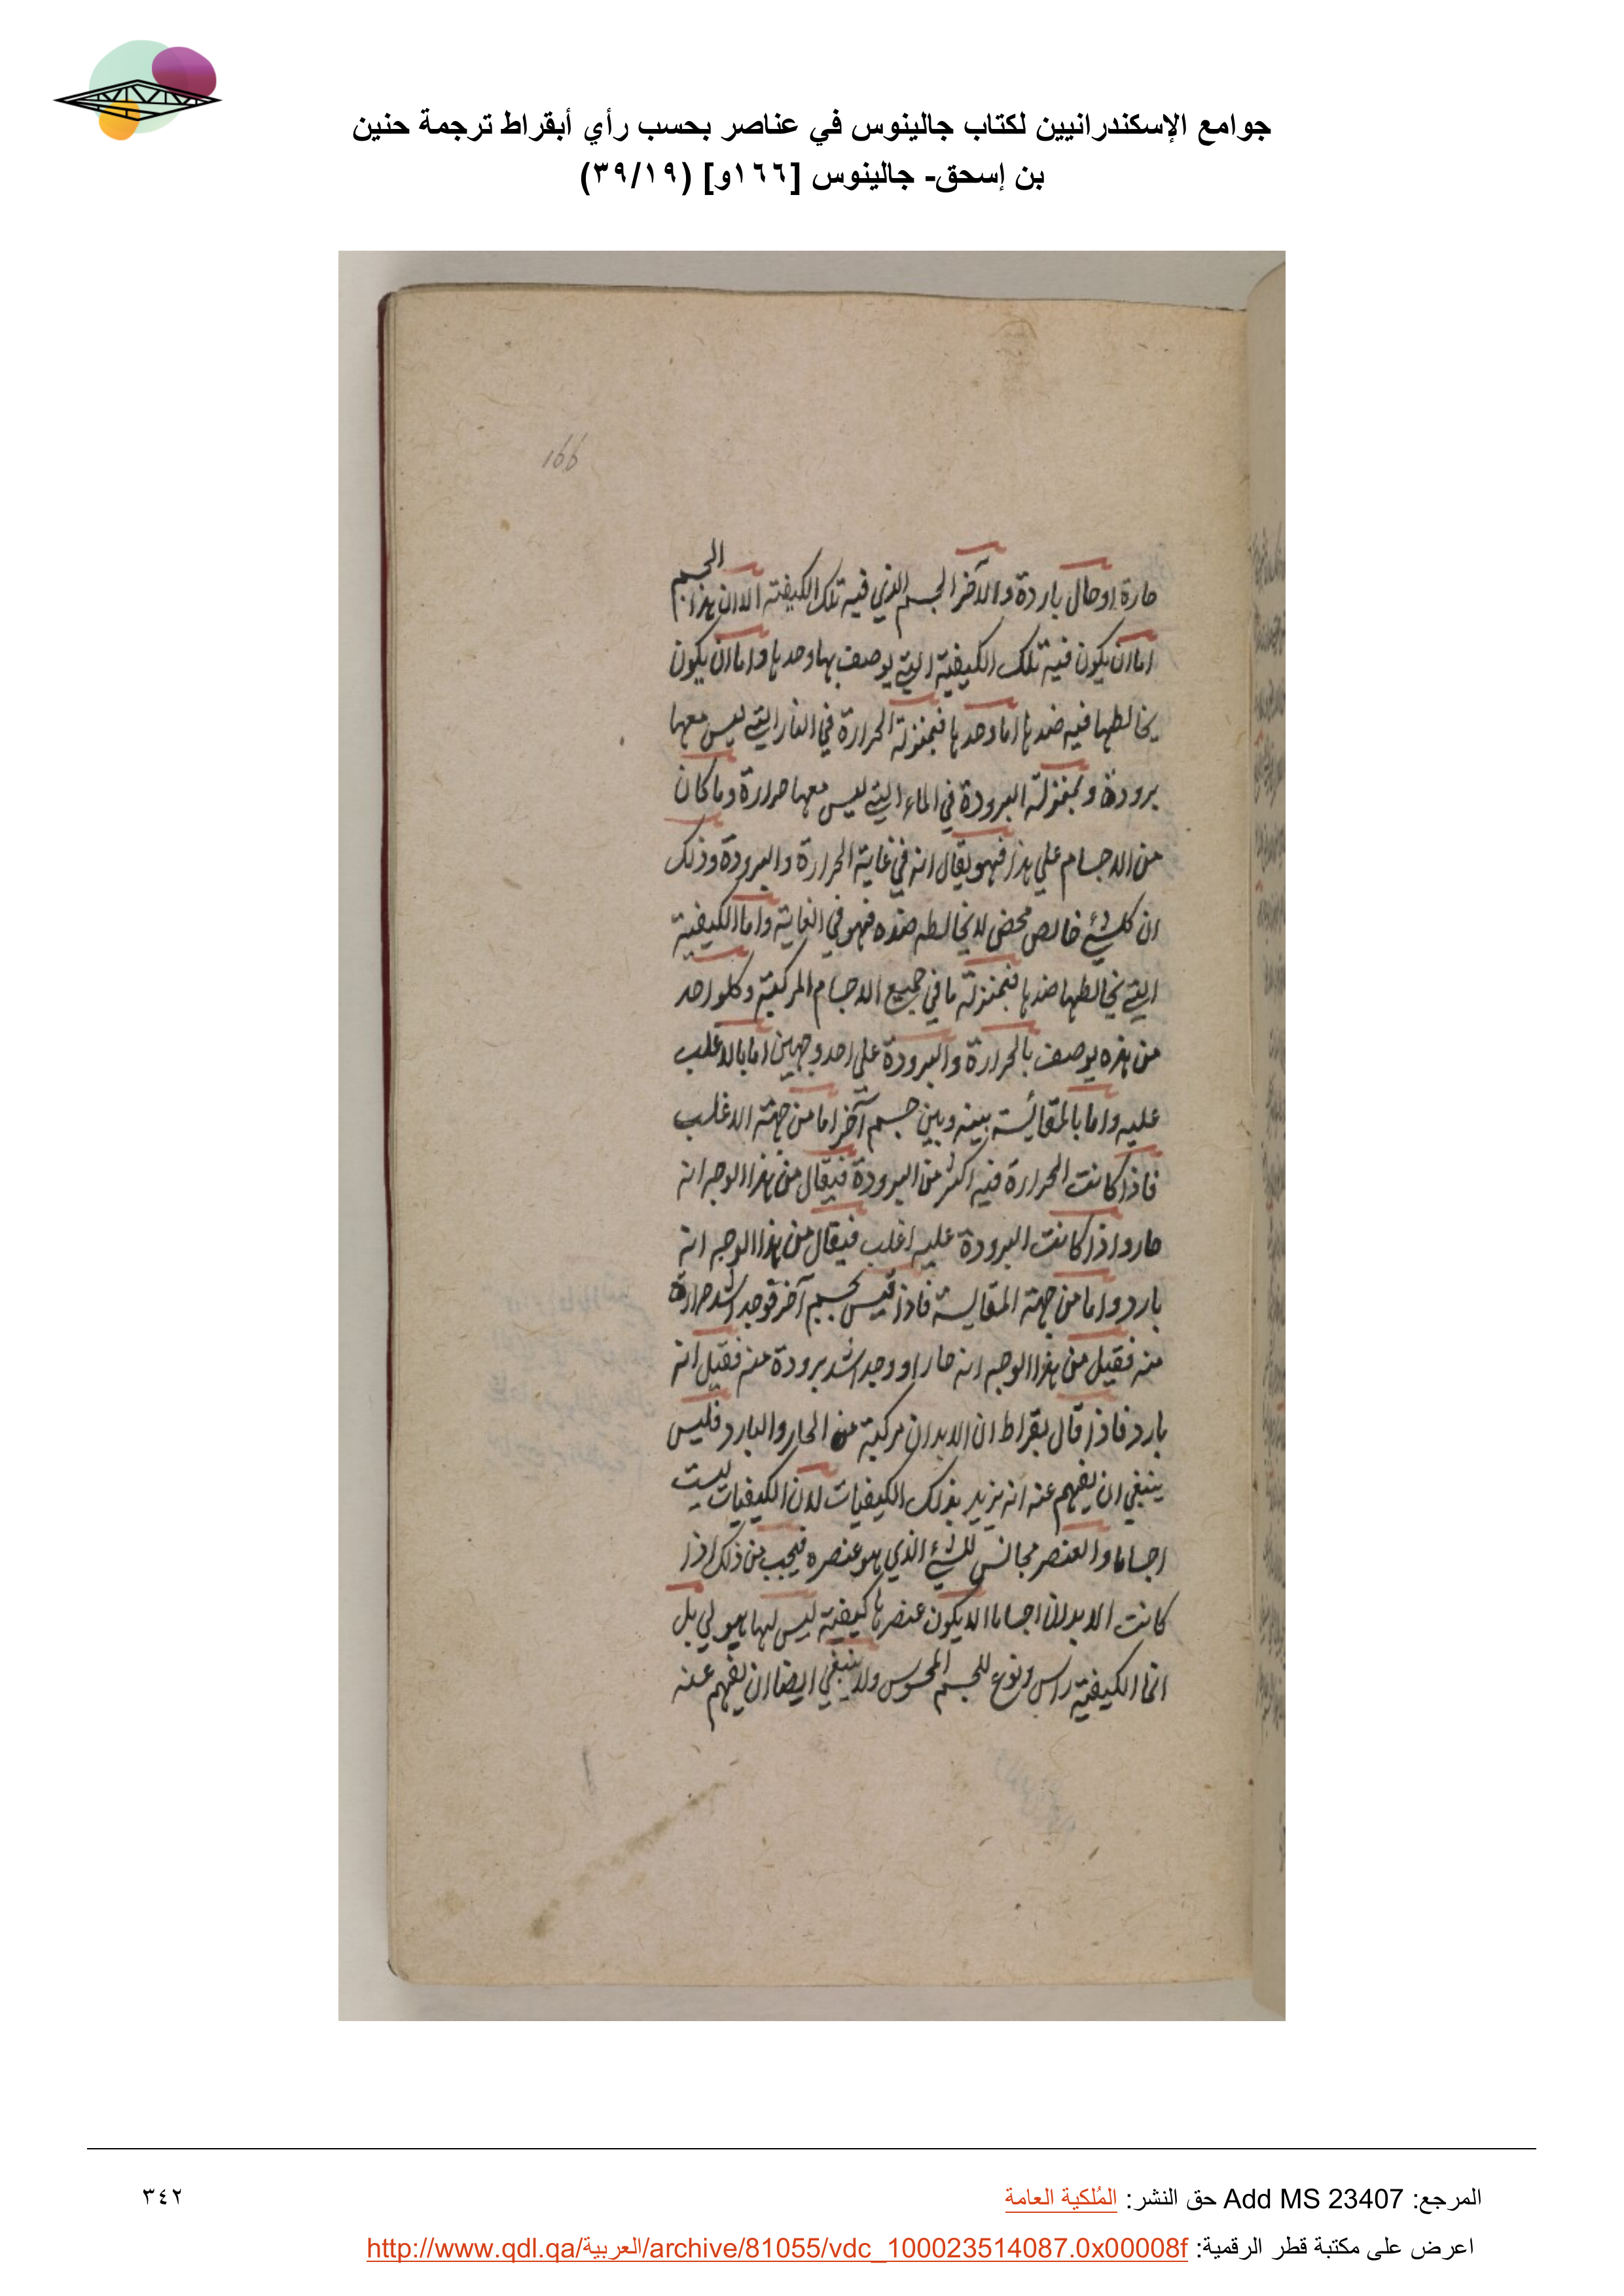 جوامع الإسكندرانيين لكتاب جالينوس في عناصر بحسب رأي أبقراط ترجمة حنين
بن إسحق- جالينوس [١٦٦و] (٣٩/١٩)
166
حارة او حال باردة والآخر الجسم الذي فيه تلك الكيفية الا ان هذا الجسم
اما ان يكون فيه تلك الكيفية التي يوصف بها وحدها واما ان يكون
يخالطها فيه ضدها اما وحدها فبمنزلة الحرارة في النار التي ليس معها
برودة وبمنزلة البرودة في الماء التي ليس معها حرارة وما كان
من الاجسام علي هذا فهو يقال انه في غاية الحرارة والبرودة وذلك
ان كل شيء خالص محض لا يخالطه ضده فهو في الغاية واما الكيفية
التي يخالطها ضدها فبمنزلة ما في جميع الاجسام المركبة وكلواحد
من هذه يوصف بالحرارة والبرودة علي احد وجهين اما بالاغلب
عليه واما بالمقائسة بينه وبين جسم آخر اما من جهة الاغلب
فاذا كانت الحرارة فيه اكثر من البرودة فيقال من هذا الوجه انه
حار واذا كانت البرودة عليه اغلب فيقال من هذا الوجه انه
بارد واما من جهة المقايسة فاذا قيس بجسم آخر فوجد اشد حرارة
منه فقيل من هذا الوجه انه حار او وجد اشد برودة منه فقيل انه
بارد فاذا قال بقراط ان الابدان مركبة من الحار والبارد فليس
ينبغي ان يفهم عنه انه يريد بذلك الكيفيات لان الكيفيات ليست
اجساما والعنصر مجانس للشيء الذي هو عنصره فيجب من ذلك اذا
كانت الابدان اجساما الا يكون عنصرها كيفية ليس لها هيولي بل
انما الكيفية راس ونوع للجسم المحسوس ولا ينبغي ايضا ان يفهم عنه
المرجع: Add MS 23407 حق النشر: المُلكية العامة
٣٤٢
اعرض على مكتبة قطر الرقمية: http://www.qdl.qa/العربية/archive/81055/vdc_100023514087.0x00008f